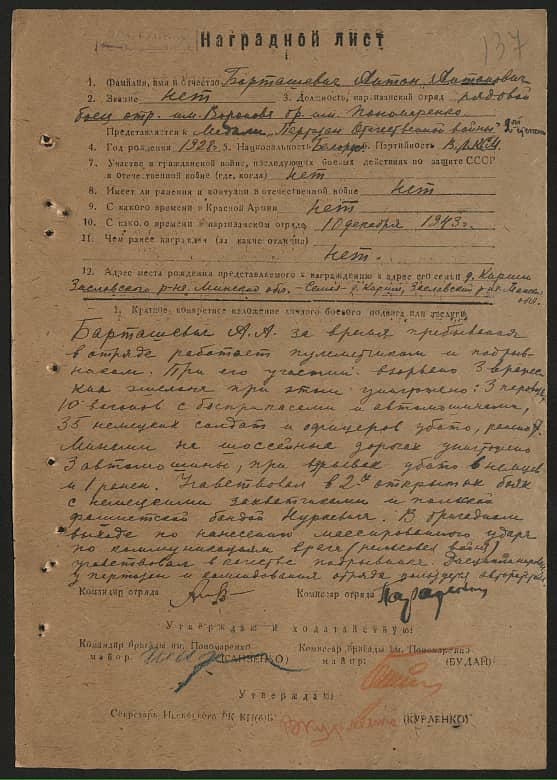 137
Наградной лист
1. Фамилия, имя и отчество Барташевич Антон Антонович
2. Звание нет 3. Должность, партизанский отряд рядовой
боец отр. им. Воронова бр. им. Пономаренко
Представляется к Медали "Партизан Отечественной войны" 2ой степени
4. Год рождения 1928г. 5. Национальность Белорус 6. Партийность ВЛКСМ
7. Участие в гражданской войне, последующих боевых действиях по защите СССР
в Отечественной войне (где, когда) нет
8. Имеет ли ранения и контузии в отечественной войне нет
9. С какого времени в Красной Армии нет
10. С какого времени в партизанском отряде 10 декабря 1943г.
11. Чем ранее награжден (за какие отличия)
нет.
12. Адрес места рождения представляемого к награждению и адрес его семьи д.
Заславского р-на Минской обл. Семья - д. Заславский р-н Минск.
обл.
1. Краткое, конкретное изложение личного боевого подвига или заслуги
Барташевич А. А. за время пребывания
в отряде работает пулеметчиком и подрыв-
ником. При его участии взорвано 3 вражес-
ких эшелона при этом уничтожено: 3 паровоза,
10 вагонов с боеприпасами и автомашинами,
35 немецких солдат и офицеров убито,
Минском на шоссейных дорогах уничтожено
3 автомашины, при взрывах убито 6 немцев
и 1 ранен. Участвовал в 2х открытых боях
с немецкими захватчиками и польской
фашистской бандой В бригадном
выходе по нанесению массированного удара
по коммуникациям врага (рельсовая война)
участвовал в качестве подрывника. Дисциплинирован,
у партизан и командования отряда пользуется авторитетом.
Командир отряда Комиссар отряда
Утверждаю и ходатайствую:
Командир бригады им. Пономаренко Комиссар бригады им. Пономаренко
майор: майор: (БУДАЙ)
Утверждаю:
Секретарь РК КП(б)Б (КУРЛЕНКО)